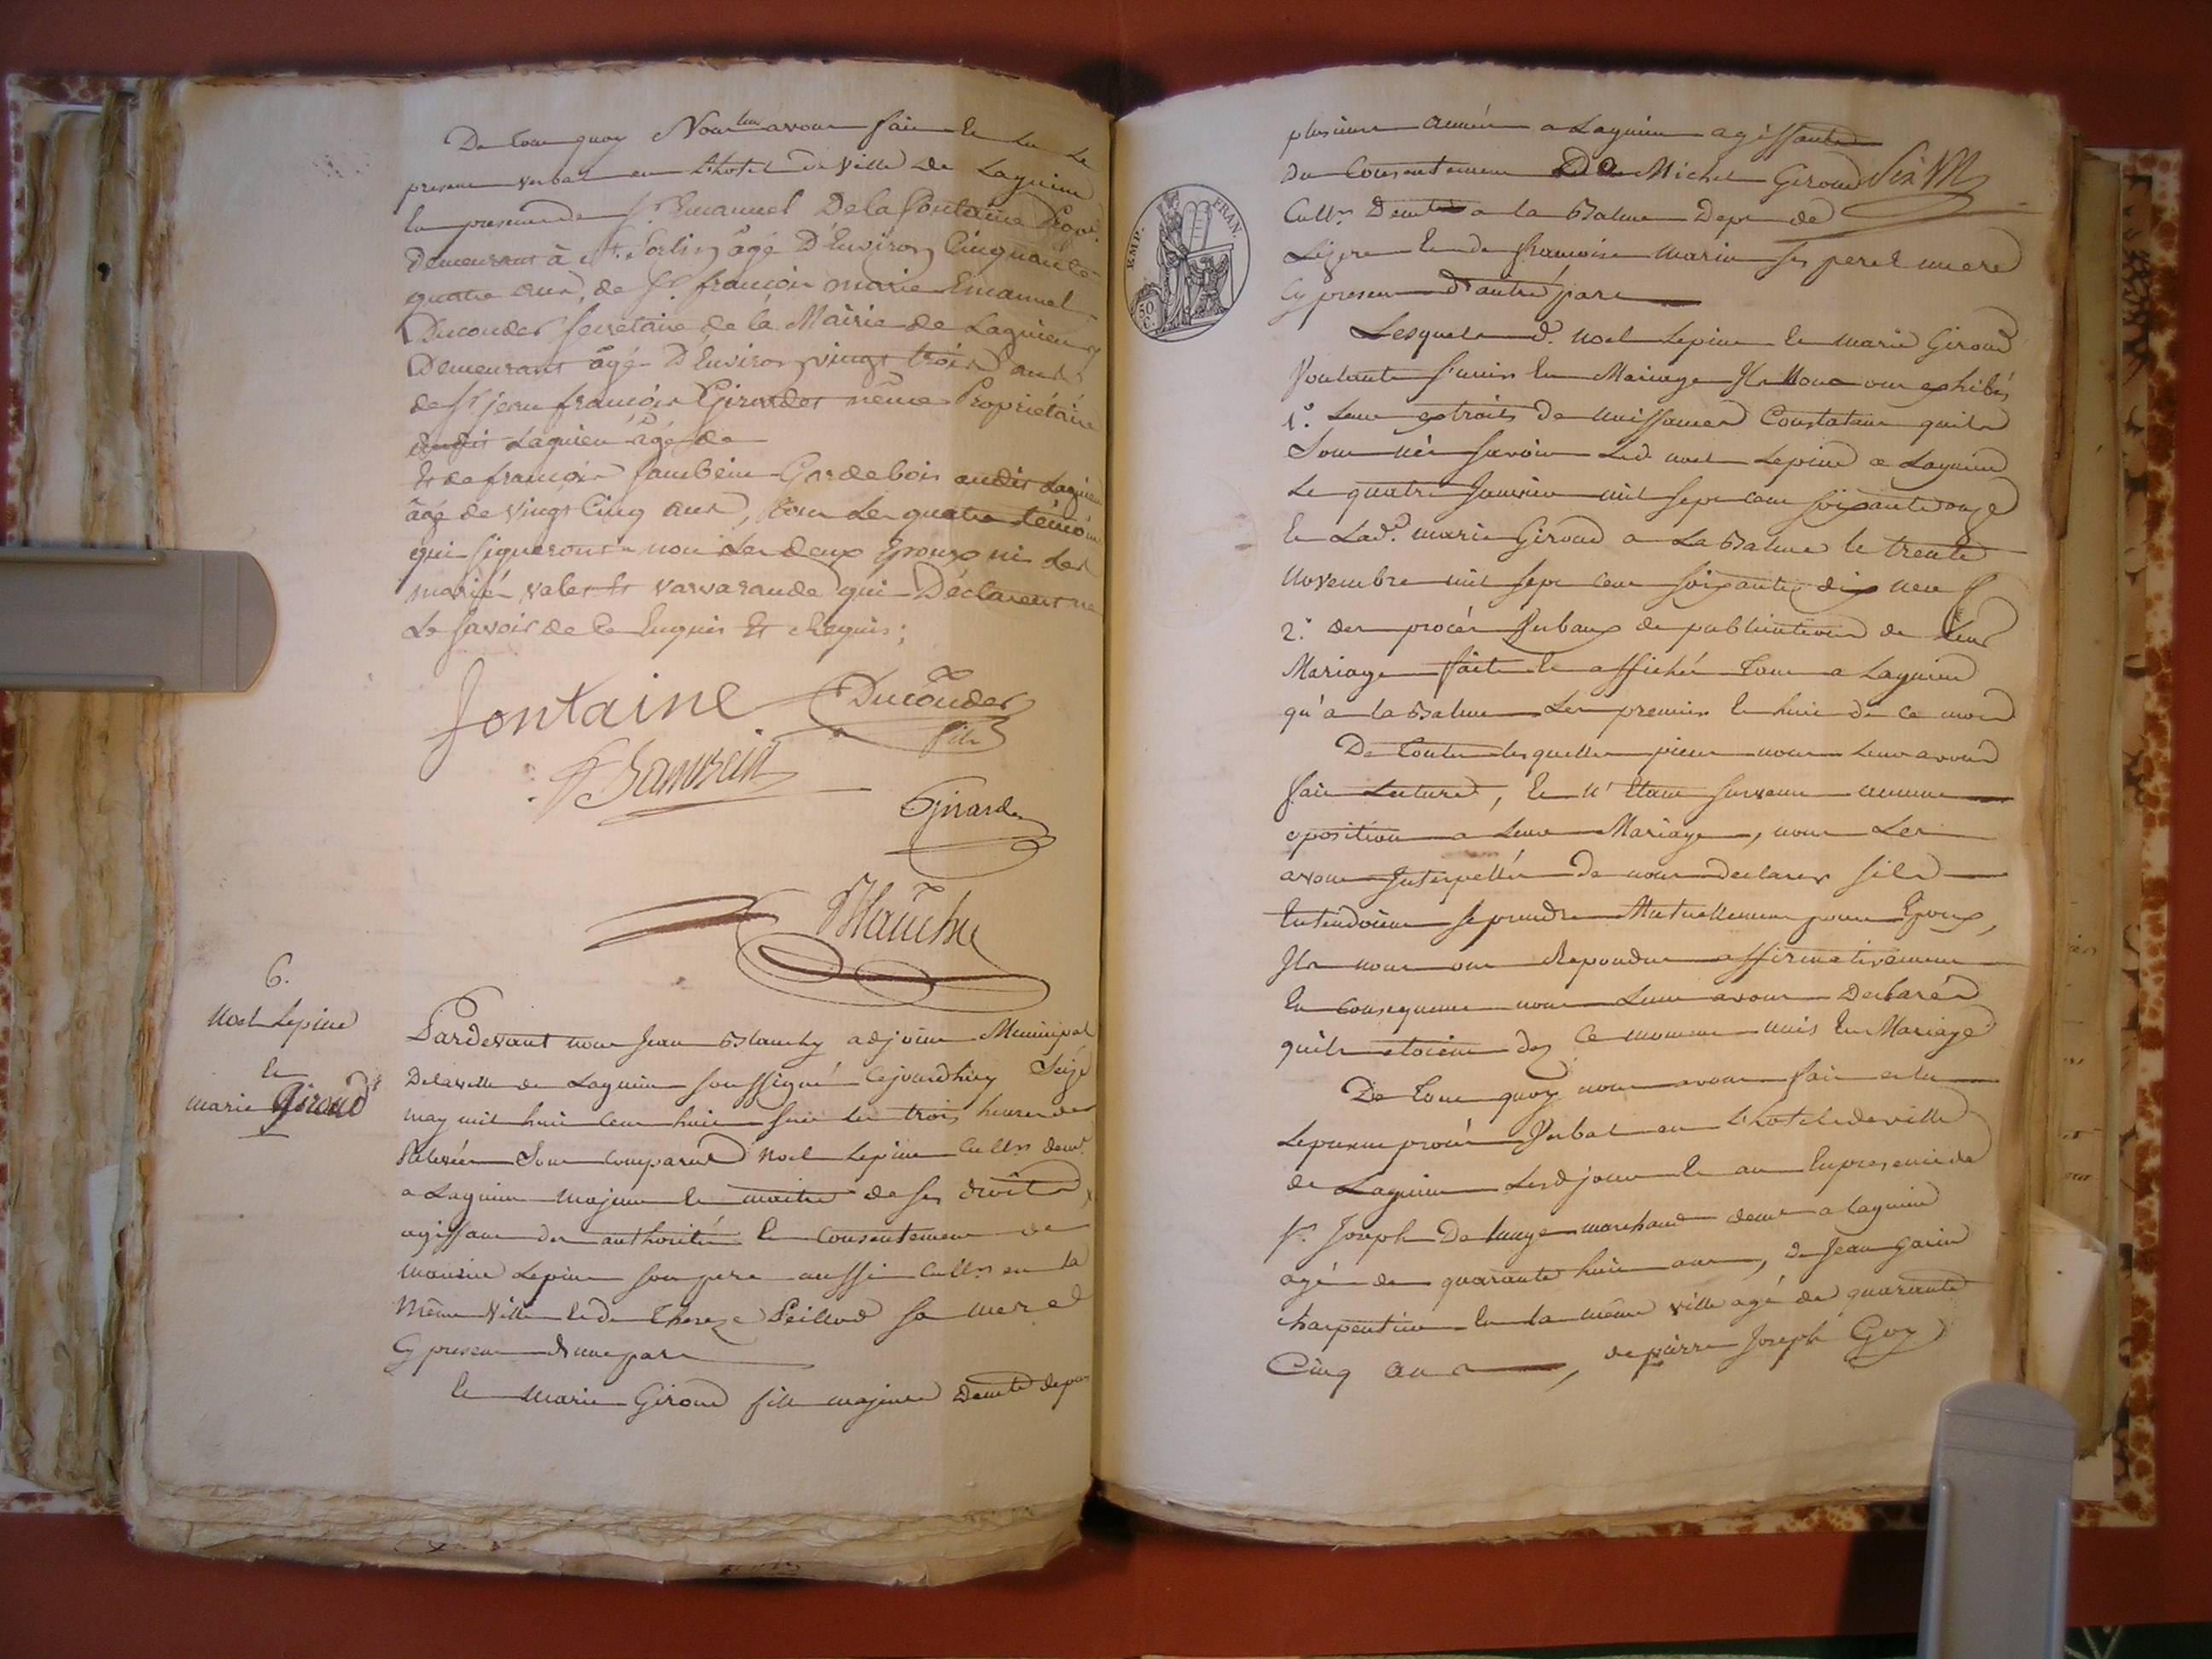 De tout quoy Nous leur avons fait et lu le
present verbal en L'hotel de Ville de Lagnieu
En presence de Sr. Emanuel Delafontaine Propre.
Demeurant à St. Sorlin âgé D'Environ Cinquante
quatre ans, de Sr. françois marie Emanuel
Ducouder Secretaire de la Mairie de Lagnieu y
Demeurant âgé D'Environ vingt trois ans
de Sr jean françois Girardet même Propriétaire
dudit Lagnieu âgé de
Et de françois Jambein Gardebois audit Lagnieu
âgé de vingt Cinq ans, tous Les quatre témoins
qui signeront non les deux Epoux ni les
mariés valet et varvarande qui Déclarent ne
Le savoir de ce Enquis Et Requis;
fontaine Ducouder
fils
Jambein
Girardet
Blanchy
6.
Noel Lepine
et
marie Giroud
Pardevant nous Jean Blanchy adjoint Municipal
Delaville de Lagnieu soussigné Cejourdhuy Seize
may mil huit cent huit sur les trois heures de
Relevée Sont comparus Noel Lepine Cultr. demt.
a Lagnieu majeur et maitre de ses droits
agissant des authorité et Consentement de
Lepine son pere aussi Cultr. en la
Même Ville et de Thereze Peillod sa mere
Cy present d'une part
Et Marie Giroud fille majeure Demte depuis
plusieurs années a Lagnieu agissante
du Consentement De Michel Giroud Six
Cultr. Demt a la Balme Dept de
Lizere et de françoise marie ses pere et mere
Cy present d'autre part
Lesquels d. Noel Lepine et marie Giroud
Voulants s'unir En Mariage Ils Nous ont exhibés
1.° Leurs extraits de naissances Constatant quils
Sont nés savoir Led. noel Lepine a Lagnieu
Le quatre Janvier mil sept cent soixante onze
et Lad. marie Giroud a La Balme le trente
Novembre mil sept cent soixante dix neuf
2.° des procès Verbaux de publications de Leur
Mariage faite et affichés tant a Lagnieu
qu'a la Balme Les premier et huit de ce mois
De toutes lesquelles pieces nous Leur avons
fait Lecture, et N'Etant survenu aucune
oposition a Leur Mariage, nous Les
avons Interpellés de nous declarer sils
Entendoient se prendre Mutuellement pour Epoux,
Ils nous ont Repondu affirmativement
En consequence nous Leur avons Declarés
quils etoient dez Ce moment unis En Mariage
De tout quoy nous avons fait et lu
Lepresent procès Verbal en L'hotel deville
de Lagnieu Lesd jour et an Enpresence de
Sr. Joseph marchand demt a Lagnieu
agé de quarante huit ans, de Jean Garin
charpentier En la même ville agé de quarante
Cinq ans, de pierre Joseph Goy
EMP. FRAN.
50 C.